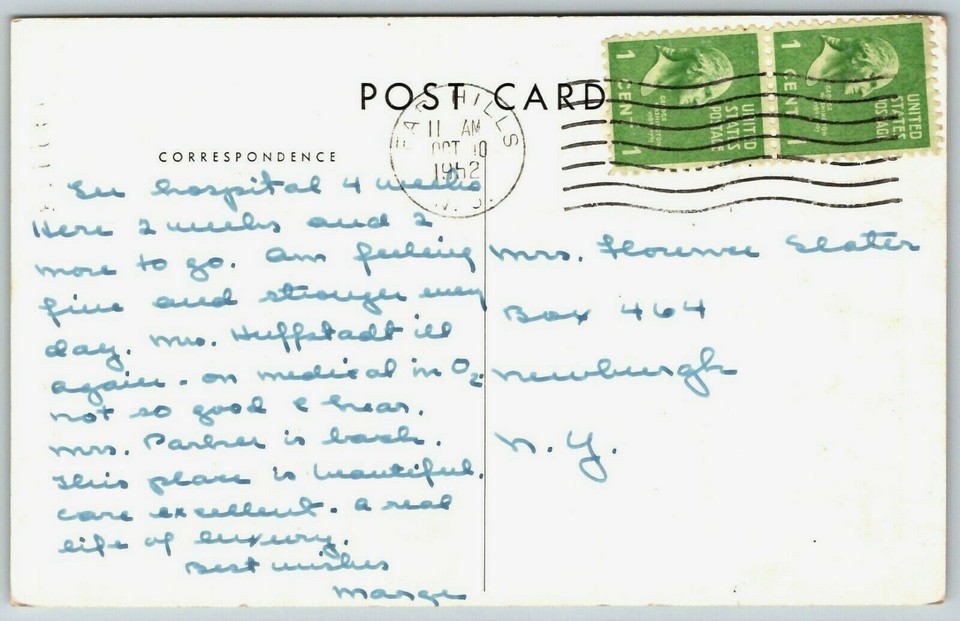 POST CARD
CORRESPONDENCE
HILLS
11 AM
OCT 10
1952
1 CENT 1
GEORGE WASHINGTON
UNITED STATES POSTAGE
1 CENT 1
UNITED STATES POSTAGE
In hospital 4 weeks
Here 2 weeks and 2
more to go. Am feeling
fine and stronger every
day. Mrs. Huffstadt ill
again - on medical in O2
not so good I hear.
Mrs. Parker is back.
This place is beautiful.
Care excellent. A real
life of luxury.
Best wishes
Marge
Mrs. Florence Slater
Box 464
Newburgh
N.Y.